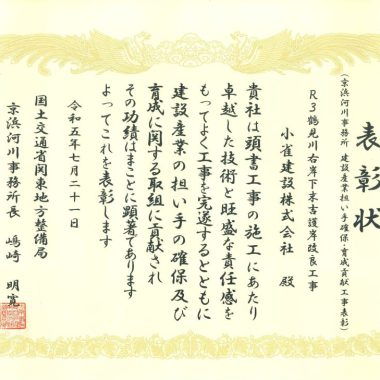 表彰状
(京浜河川事務所 建設産業担い手確保・育成貢献工事表彰)
R3鶴見川右岸下末吉護岸改良工事
小雀建設株式会社 殿
貴社は頭書工事の施工にあたり
卓越した技術と旺盛な責任感を
もってよく工事を完遂するとともに
建設産業の担い手の確保及び
育成に関する取組に貢献され
その功績はまことに顕著であります
よってこれを表彰します
令和五年七月二十一日
国土交通省関東地方整備局
京浜河川事務所長 嶋崎 明寛